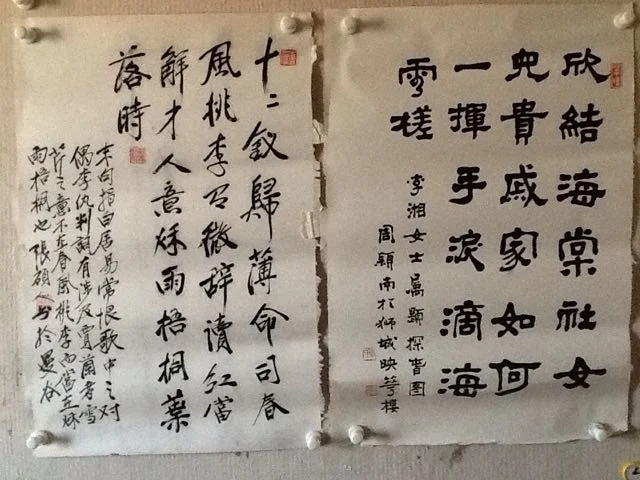 欣結海棠社女
兒貴戚家如何
一揮手淚滴海
雲槎
李湘女士屬題探春圖
周穎南於獅城映華樓
十二釵歸薄命司春
風桃李召微辭讀紅當
解才人意秋雨梧桐葉
落時
末句指白居易常恨歌中之對
偶李紈判詞有涉及賈蘭者雪
芹之意不在春風桃李而當在秋
雨梧桐也張碩人書於曼谷